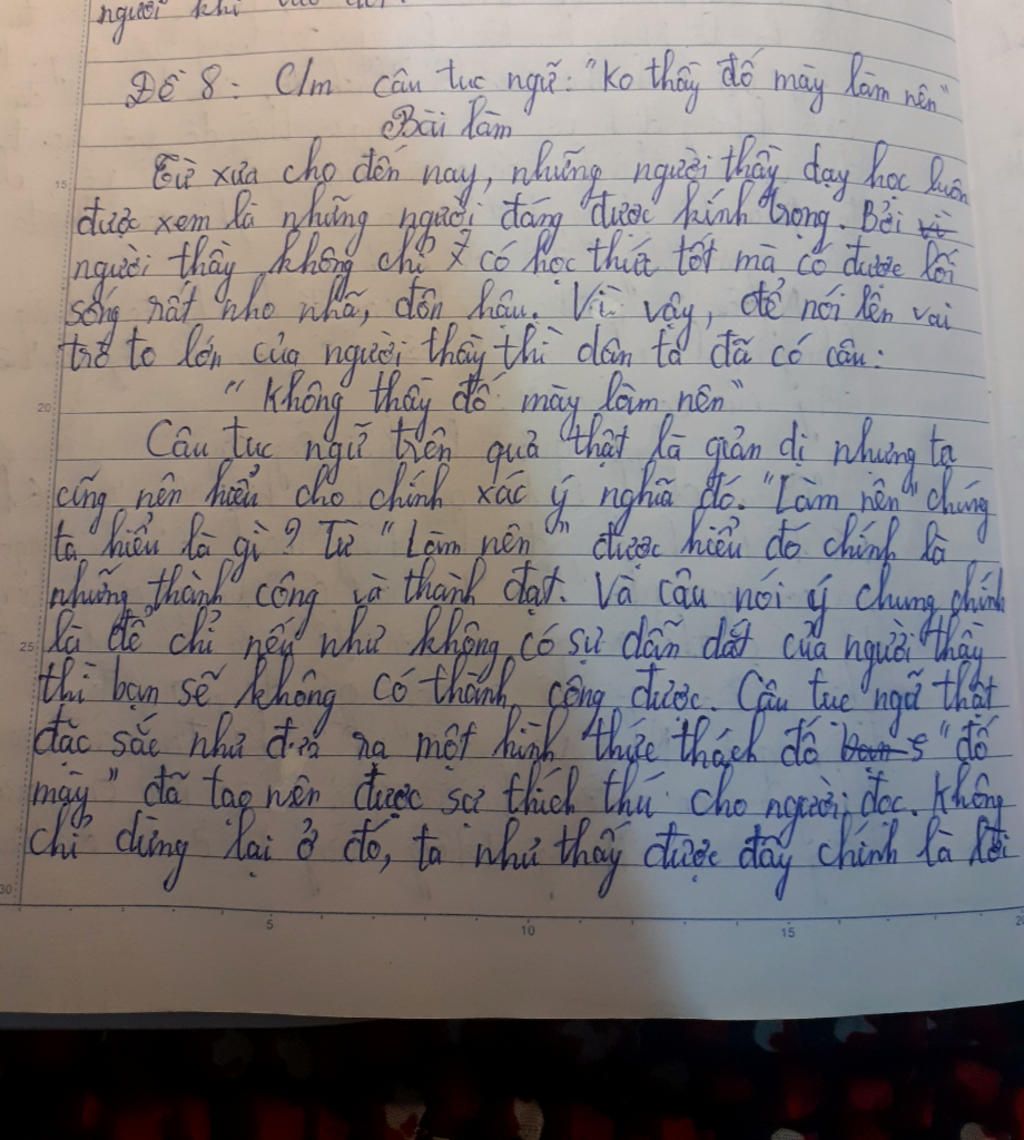 người khi vào
Đề 8: C/m câu tục ngữ: "Ko thầy đố mày làm nên"
Bài làm
Từ xưa cho đến nay, những người thầy dạy học luôn
được xem là những người đáng được kính trọng. Bởi vì
người thầy không chỉ có học thức tốt mà có được lối
sống rất nho nhã, đôn hậu. Vì vậy, để nói lên vai
trò to lớn của người thầy thì dân ta đã có câu:
"Không thầy đố mày làm nên"
Câu tục ngữ trên quả thật là giản dị nhưng ta
cũng nên hiểu cho chính xác ý nghĩa đó. "Làm nên" chúng
ta hiểu là gì? Từ "Làm nên" được hiểu đó chính là
những thành công và thành đạt. Và câu nói ý chung chính
là để chỉ nếu như không có sự dẫn dắt của người thầy
thì bạn sẽ không có thành công được. Câu tục ngữ thật
đặc sắc như đưa ra một hình thức thách đố "đố
mày" đã tạo nên được sự thích thú cho người đọc. Không
chỉ dừng lại ở đó, ta như thấy được đây chính là lời
15
20
25
30
5
10
15